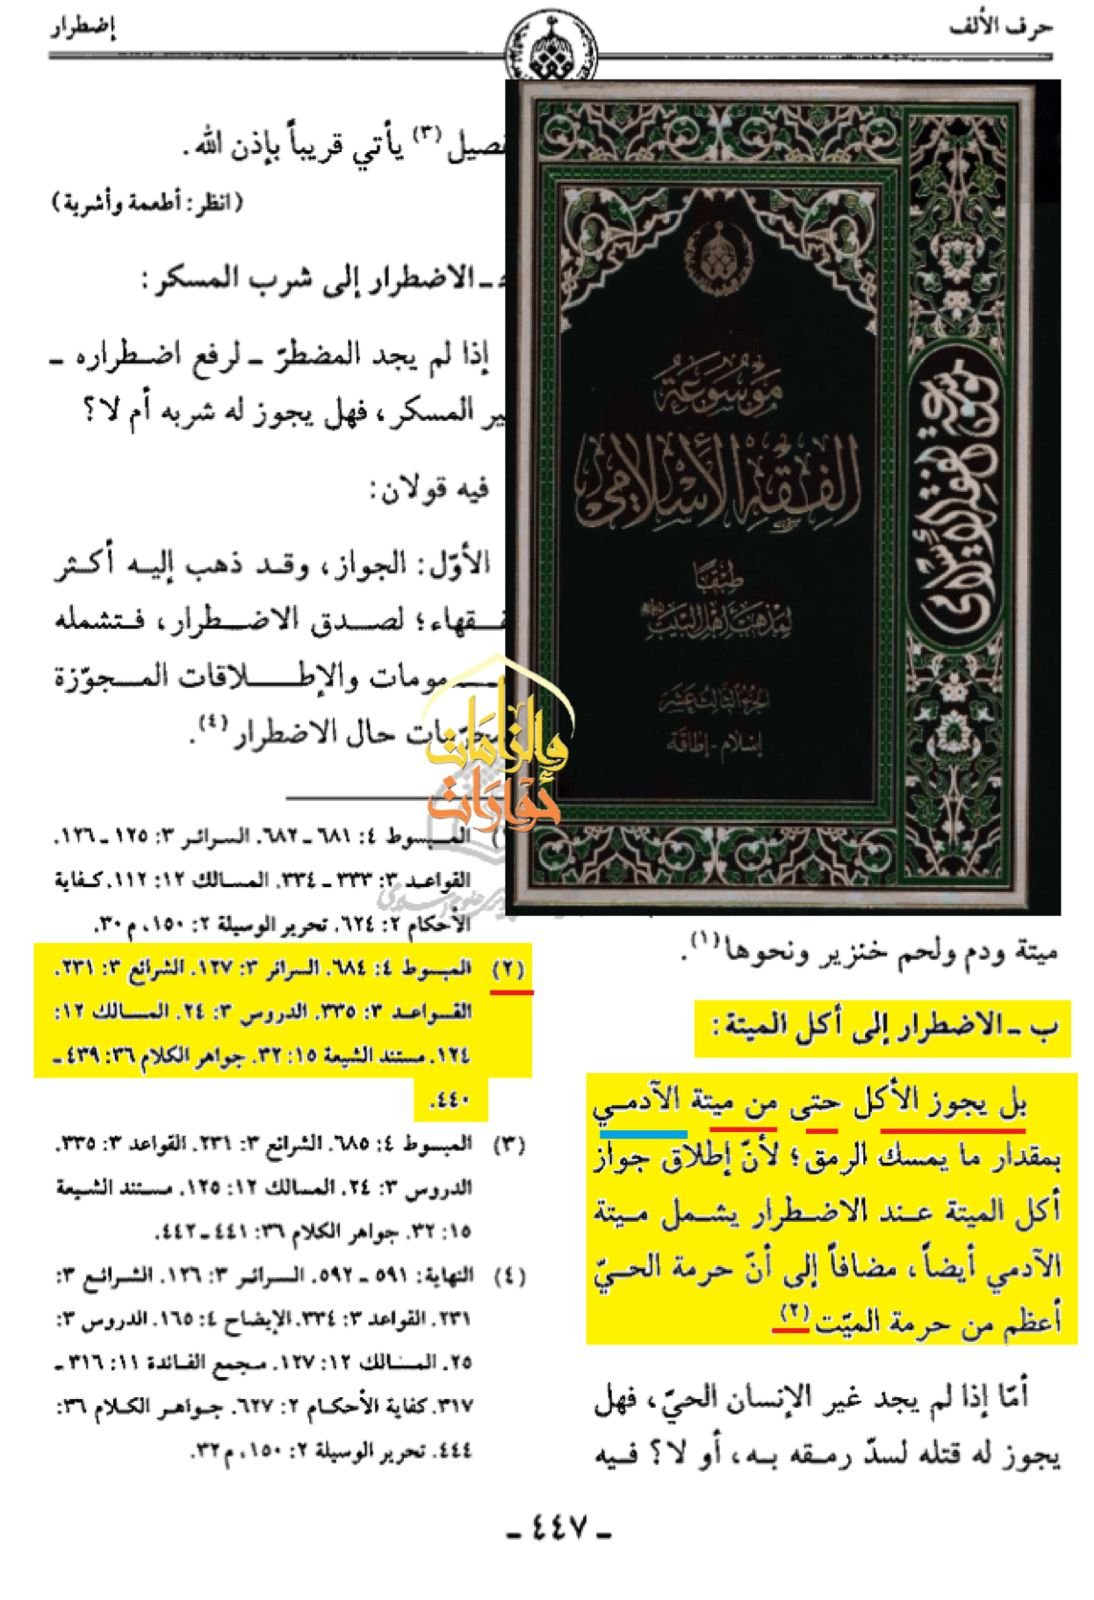 حرف الألف
إضطرار
موسوعة
الفقه الإسلامي
طبقاً
لمذهب أهل البيت
الجزء الثالث عشر
إسلام - إطاقة
موسوعة الفقه الإسلامي
ميتة ودم ولحم خنزير ونحوها(١).
ب ـ الاضطرار إلى أكل الميتة:
بل يجوز الأكل حتى من ميتة الآدمـي
بمقدار ما يمسك الرمق؛ لأنّ إطلاق جواز
أكل الميتة عند الاضطرار يشمل ميتة
الآدمي أيضاً، مضافاً إلى أنّ حرمة الحـيّ
أعظم من حرمة الميّت(٢).
أمّا إذا لم يجد غير الإنسان الحيّ، فهل
يجوز له قتله لسدّ رمقه به، أو لا؟ فيه
فصيل(٣) يأتي قريباً بإذن الله.
(انظر: أطعمة وأشربة)
ـ الاضطرار إلى شرب المسكر:
إذا لم يجد المضطرّ ـ لرفع اضطراره ـ
ير المسكر، فهل يجوز له شربه أم لا؟
فيه قولان:
الأوّل: الجواز، وقد ذهب إليه أكثر
فقهاء؛ لصدق الاضطرار، فتشمله
مومات والإطلاقات المجوّزة
محرّمات حال الاضطرار(٤).
والزامات
حوارات
المبسوط ٤: ٦٨١ ـ ٦٨٢. السرائر ٣: ١٢٥ ـ ١٢٦.
القواعد ٣: ٣٣٣ ـ ٣٣٤. المسالك ١٢: ١١٢. كفاية
الأحكام ٢: ٦٢٤. تحرير الوسيلة ٢: ١٥٠، م ٣٠.
(٢) المبسوط ٤: ٦٨٤. السرائر ٣: ١٢٧. الشرائع ٣: ٢٣١.
القواعد ٣: ٣٣٥. الدروس ٣: ٢٤. المسالك ١٢:
١٢٤. مستند الشيعة ١٥: ٣٢. جواهر الكلام ٣٦: ٤٣٩ ـ
٤٤٠.
(٣) المبسوط ٤: ٦٨٥. الشرائع ٣: ٢٣١. القواعد ٣: ٣٣٥.
الدروس ٣: ٢٤. المسالك ١٢: ١٢٥. مستند الشيعة
١٥: ٣٢. جواهر الكلام ٣٦: ٤٤١ ـ ٤٤٢.
(٤) النهاية: ٥٩١ ـ ٥٩٢. السرائر ٣: ١٢٦. الشرائع ٣:
٢٣١. القواعد ٣: ٣٣٤. الإيضاح ٤: ١٦٥. الدروس ٣:
٢٥. المسالك ١٢: ١٢٧. مجمع الفائدة ١١: ٣١٦ ـ
٣١٧. كفاية الأحكام ٢: ٦٢٧. جواهر الكلام ٣٦:
٤٤٤. تحرير الوسيلة ٢: ١٥٠، م ٣٢.
ـ ٤٤٧ ـ